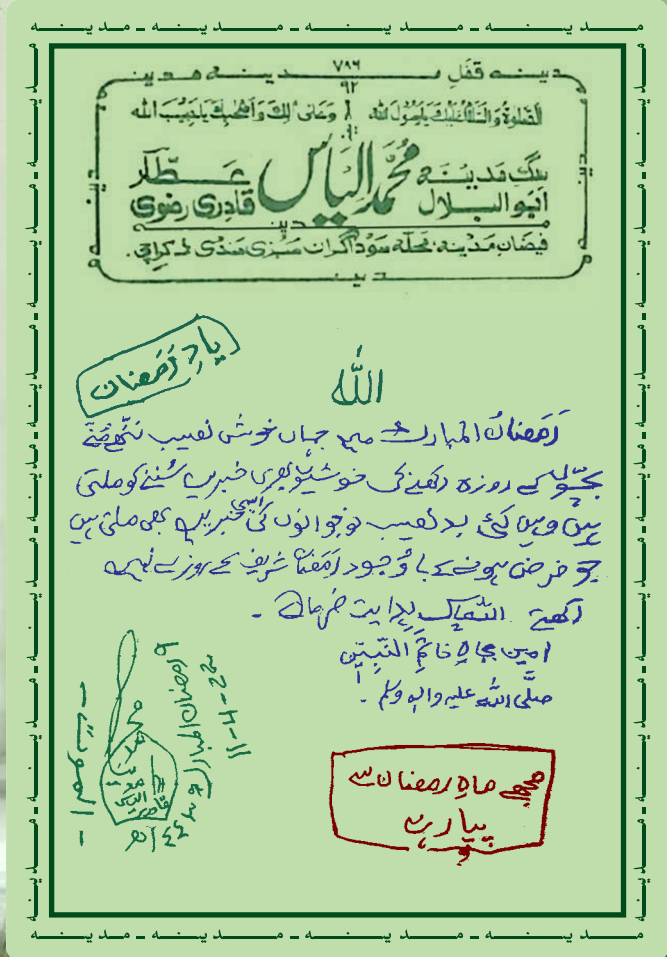 مدینہ - مدینہ - مدینہ - مدینہ - مدینہ - مدینہ
مدینہ قفلِ ۷۸۶ مدینہ مدینہ
۹۲
الصلوٰۃ والسلام علیک یا رسول اللہ وعلیٰ اٰلک واصحٰبک یا حبیب اللہ
سگِ مدینہ محمد الیاس عطّار
ابو البلال قادری رضوی
مدینہ
فیضانِ مدینہ، محلّہ سوداگران سبزی منڈی کراچی۔
مدینہ
یادِ رَمَضان
اللہ
رَمَضانُ المبارک میں جہاں خوش نصیب ننّھے مُنّے
بچّوں کے روزہ رکھنے کی خوشبوؤں بھری خبریں سُننے کو ملتی
ہیں وہیں کئی بد نصیب نوجوانوں کی ایسی خبریں بھی ملتی ہیں
جو فرض ہونے کے باوُجود رَمَضان شریف کے روزے نہیں
رکھتے۔ اللہ پاک ہِدایت فرمائے۔
امین بجاہِ خاتَمِ النَّبِیّٖن
صلَّی اللہ علیہ واٰلہٖ وسلم۔
۹ رمضان المبارک ۱۴۴۳ھ
11-4-22
- الموت -
مجھے ماہِ رمضان سے
پیار ہے